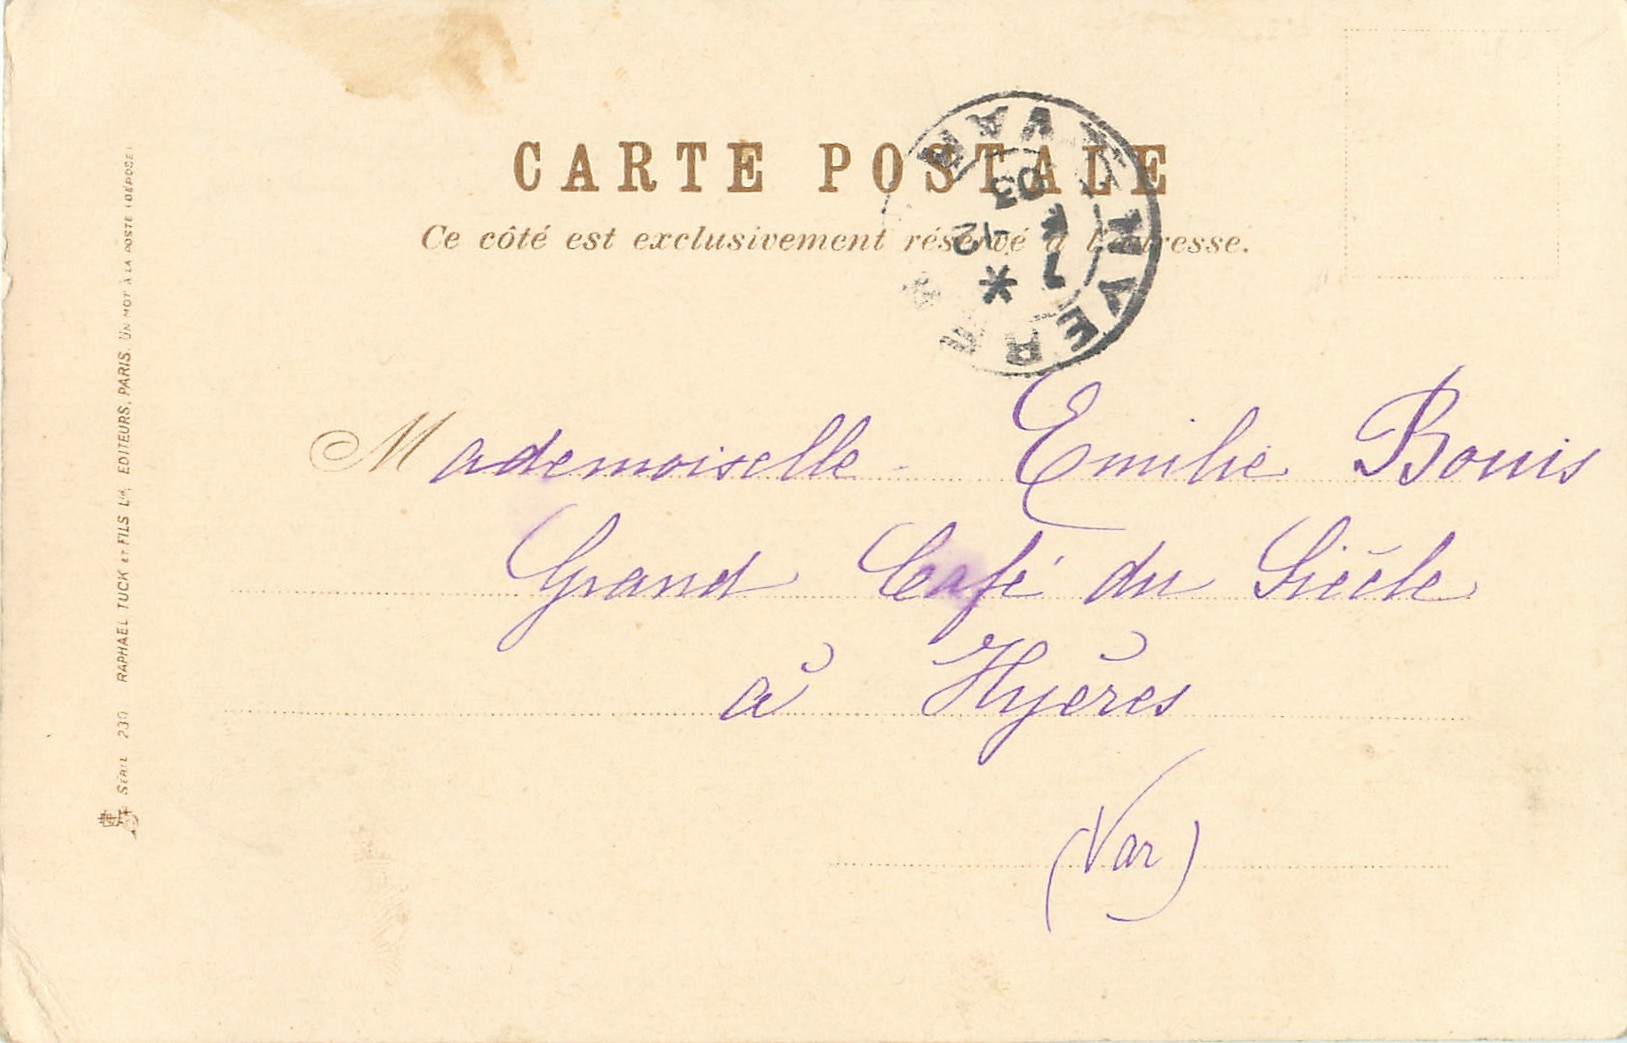 CARTE POSTALE
Ce côté est exclusivement réservé à l'adresse.
Mademoiselle Emilie Bouis
Grand Café du Siècle
à Hyères
(Var)
SERIE 230 RAPHAEL TUCK ET FILS LTD, EDITEURS, PARIS. UN MOT À LA POSTE (DÉPOSÉ)
VAR
7
12
03